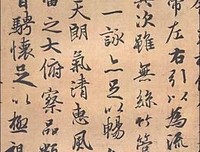 帶左右引以為流
其次雖無絲竹管
一詠亦足以暢
天朗氣清惠風
宙之大俯察品類
目騁懷足以極視